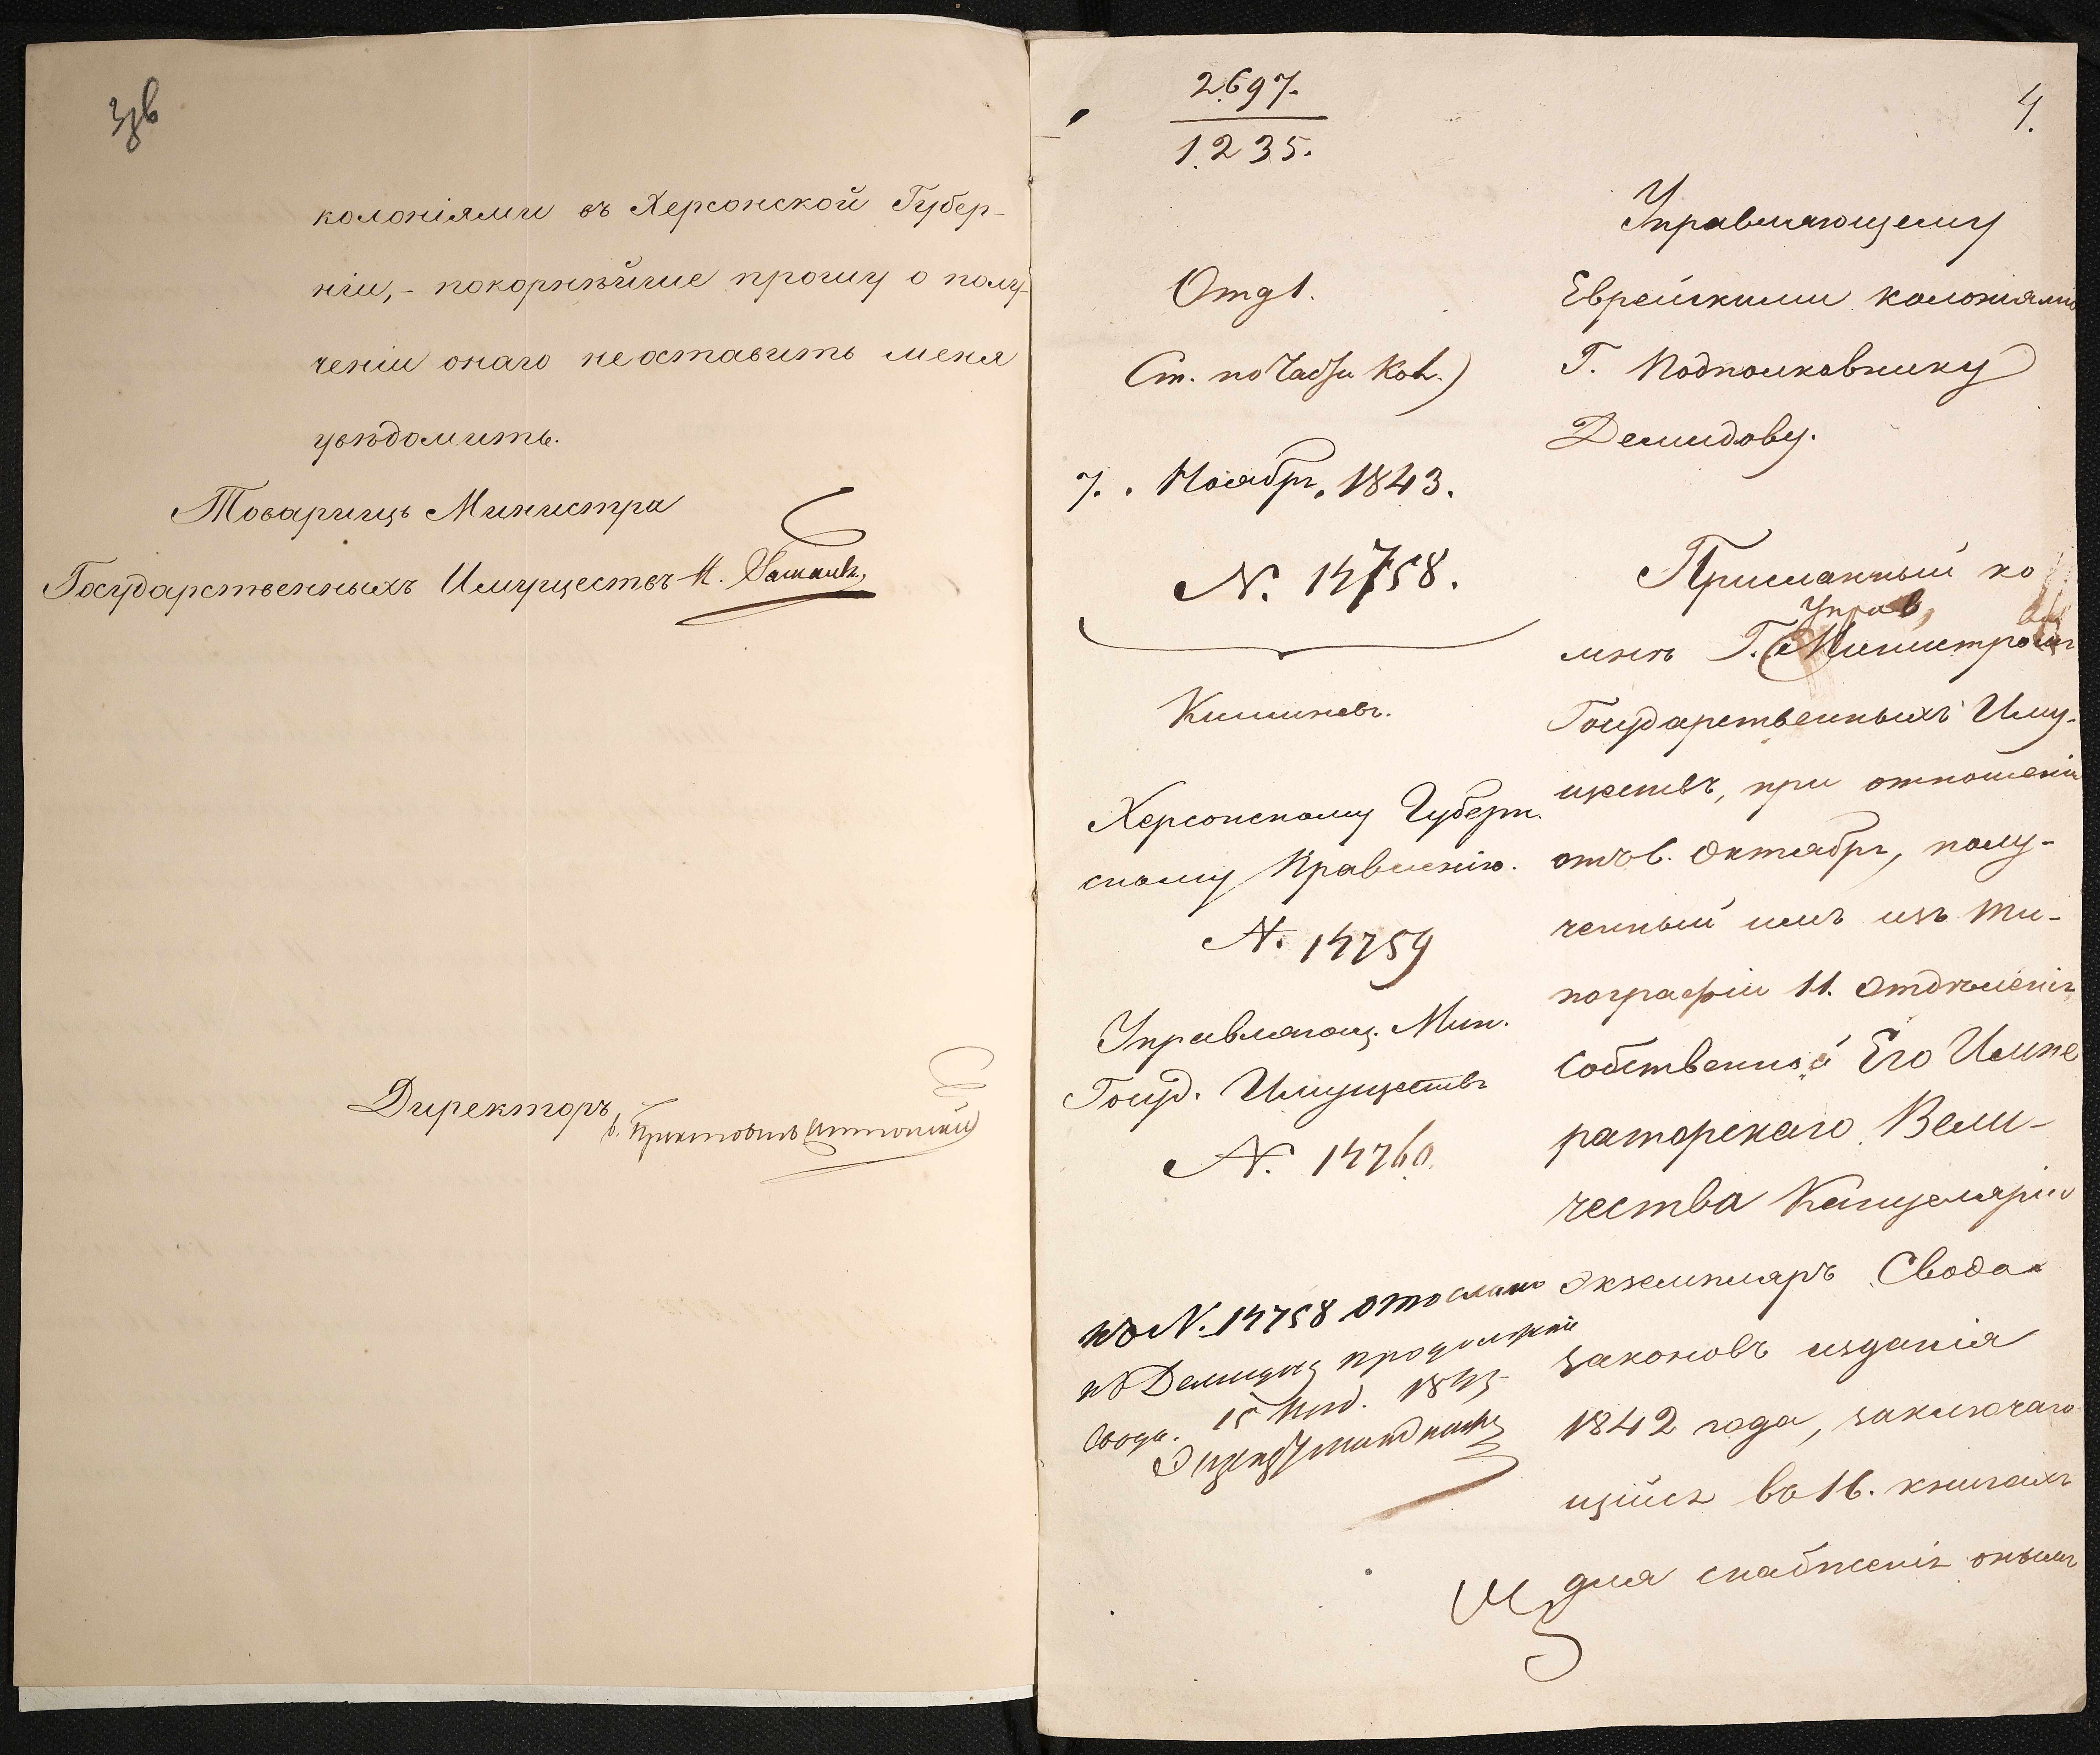 3об
колоніями въ Херсонской Губер-
ніи,- покорнѣйше прошу о полу-
ченіи онаго неоставить меня
увѣдомить.
Товарищъ Министра
Государственныхъ Имуществъ Н.
Директоръ,
4.
2697.
1235.
Отд 1.
Ст. по Части Кол.)
7. Ноября, 1843.
N. 14758.
Кишиневъ.
Херсонскому Губерн.
скому Правленію.
N. 14759
Управляющ. Мин.
Госуд. Имуществъ
N. 14760.
къ N. 14758 отослано
къ Демидову продолженіе
Свода. 15 Нояб. 1843
Управляющему
Еврейскими колоніями
Г. Подполковнику
Демидову.
Присланный ко
Управ
мнѣ Г. Министромъ
Государственныхъ Иму-
ществъ, при отношеніи
отъ 6. Октября, полу-
ченный имъ изъ ти-
пографіи 11. Отдѣленія
Собственной Его Импе
раторскаго Вели-
чества Канцеляріи
экземпляръ Свода
законовъ изданія
1842 года, заключаю
щійся въ 16. книгахъ
для снабженія онымъ